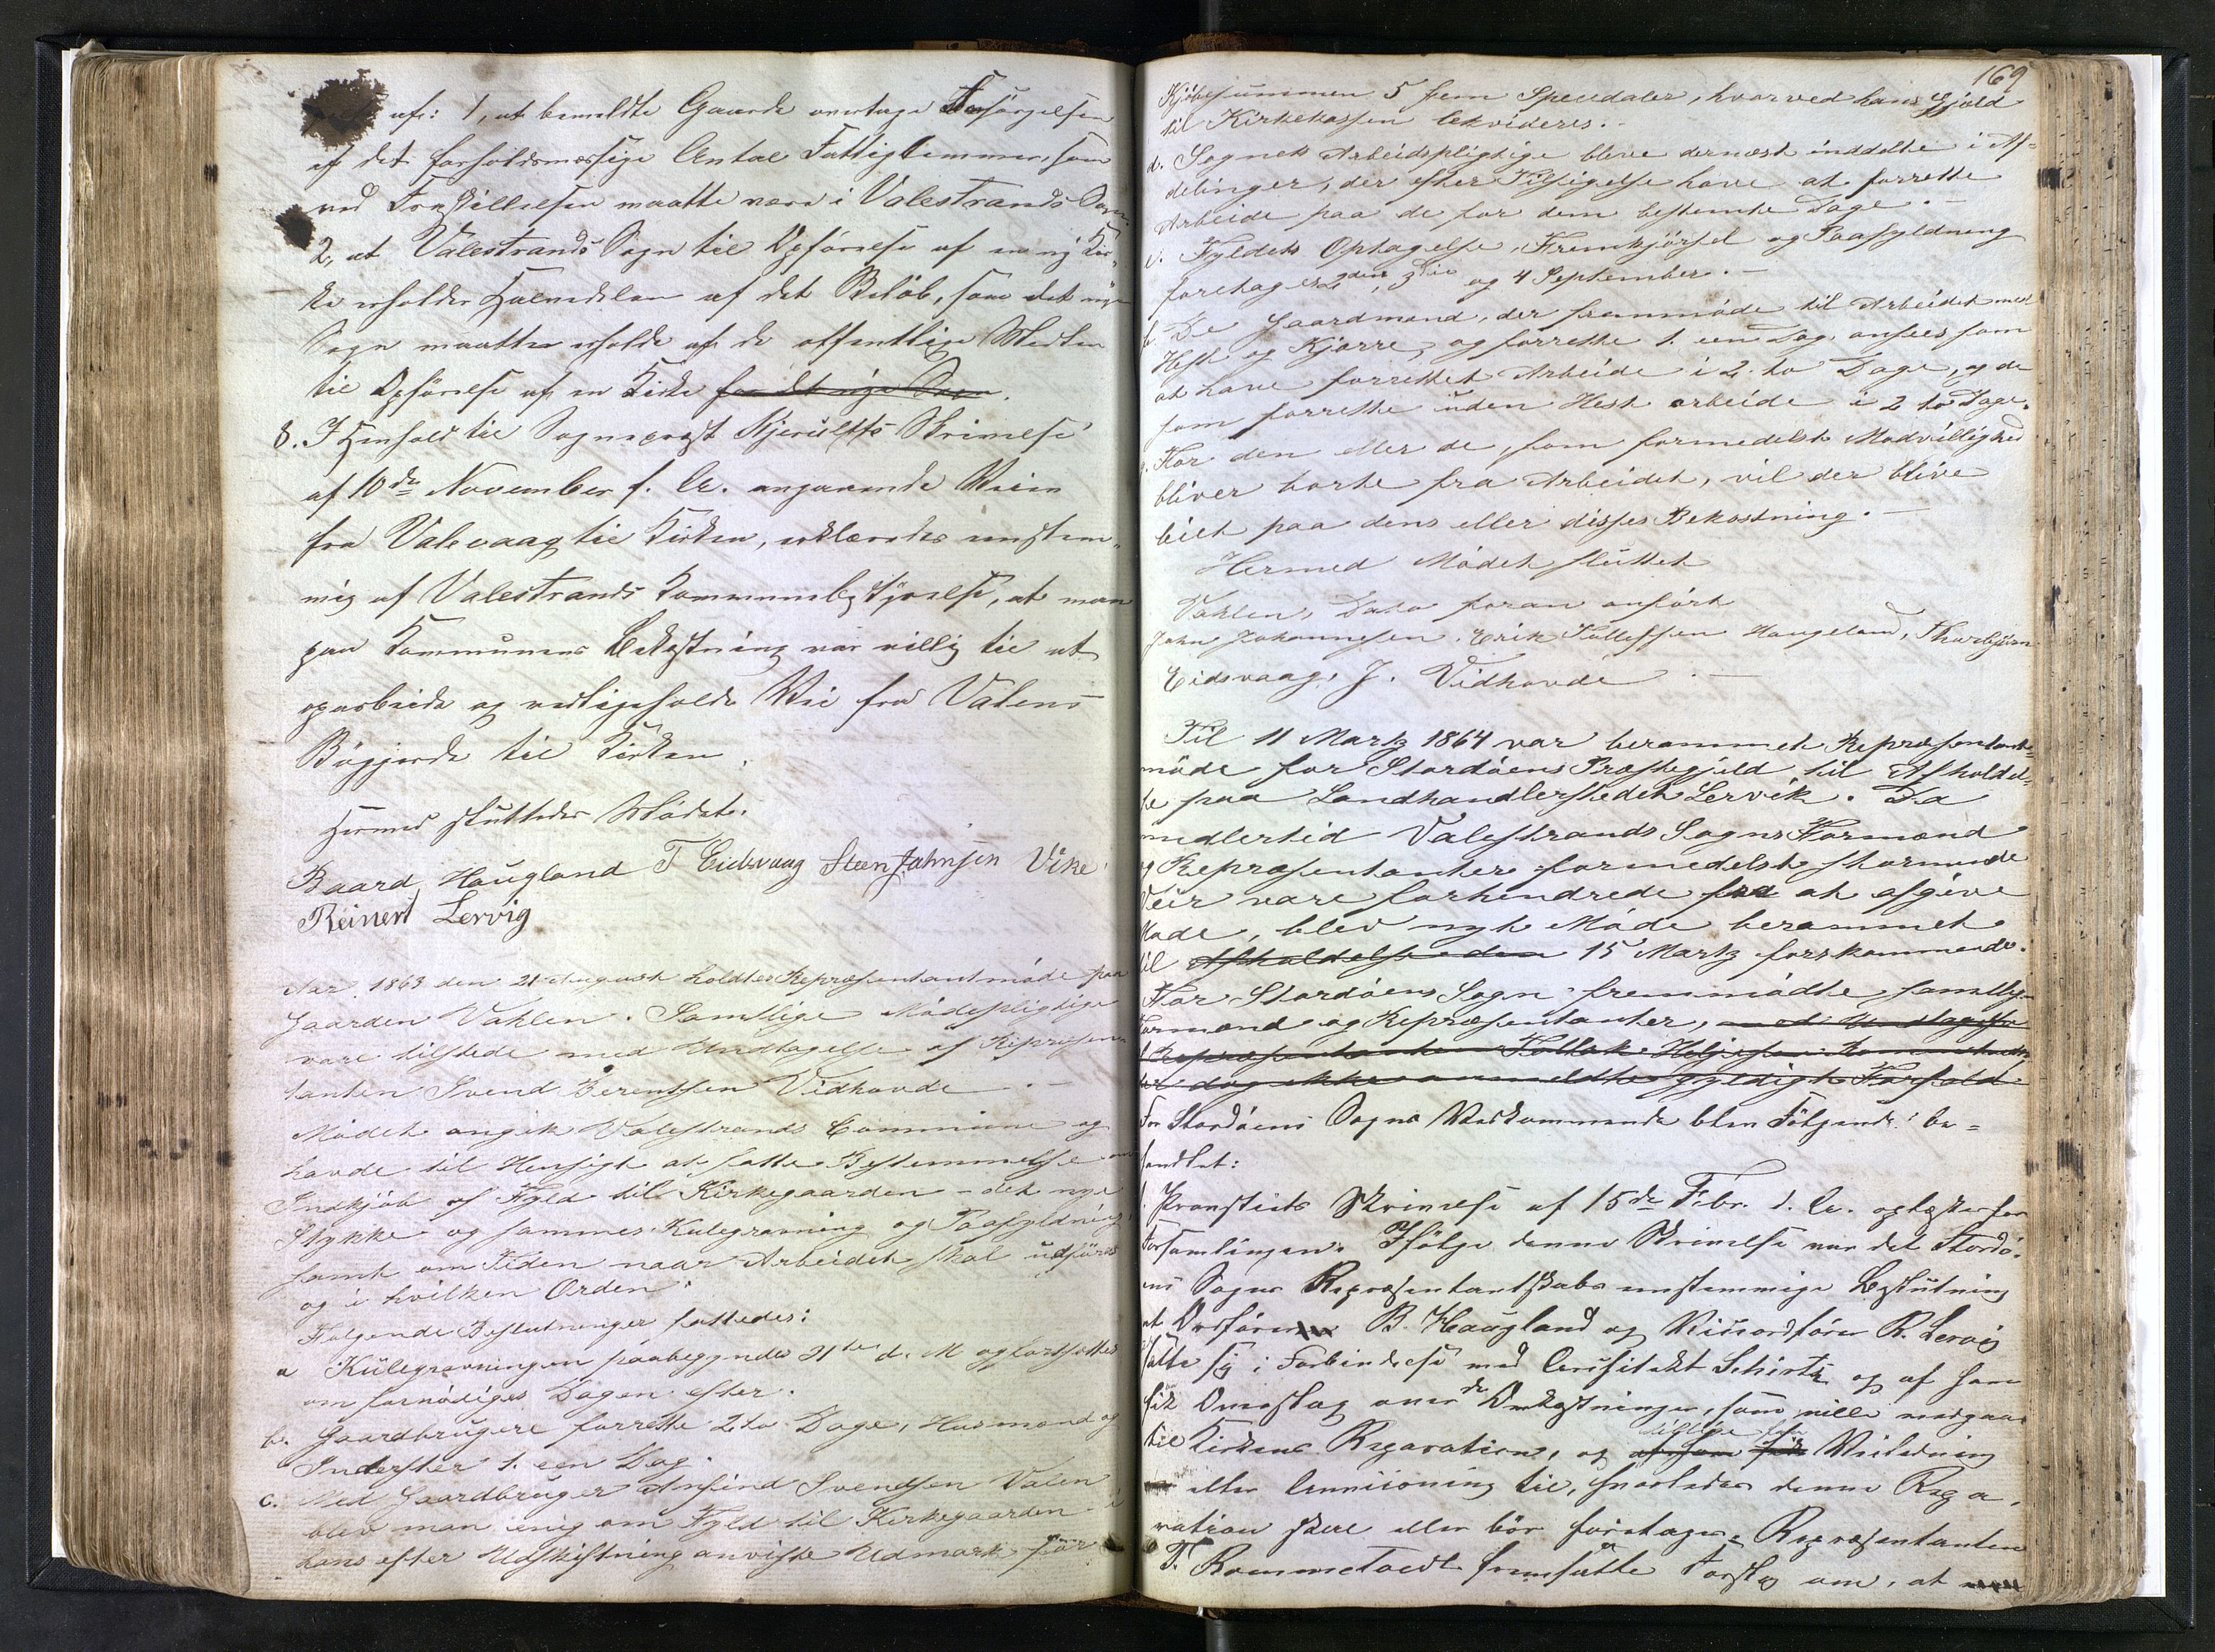 af: 1, at bemeldte Gaarde overtage Forsørgelsen
af det forholdsmæssige Antal Fattiglemmer, som
ved Fraskillelsen maatte være i Valestrands Sogn
2, at Valestrands Sogn til Opførelse af en ny Kir„
ke erholder Halvdelen af det Beløb, som det nye
Sogn maatte erholde af de offentlige Midler
til Opførelse af en Kirke for det nye Sogn.
8. I Henhold til Sogneprest Kjerulffs Skrivelse
af 10de November f. A. angaaende Veien
fra Valevaag til Kirken, erklæredes eenstem„
mig af Valestrands Kommunebestyrelse, at man
paa Kommunens Bekostning var villig til at
oparbeide og vedligeholde Vei fra Valens
Bøgjerde til Kirken.
Hermed sluttedes Mødet.
Baard Haugland T Eidsvaag Steen Johnsen Vike
Reinert Lervig
Aar 1863 den 21 August holdtes Repræsentantmøde paa
Gaarden Vahlen. Samtlige Mødepligtige
vare tilstede med Undtagelse af Repræsen-
tanten Svend Berentsen Vidhovde. —
Mødet angik Valestrands Commune og
havde til Hensigt at fatte Bestemmelse om
Indkjøb af Fyld til Kirkegaarden – det nye
Stykke og sammes Kulegravning og Paafyldning
samt om Tiden naar Arbeidet skal udføres
og i hvilken Orden.
Følgende Beslutninger fattedes:
a Kulegravningen paabegyndes 31te d. M og fortsættes
om fornødiges Dagen efter.
b. Gaardbrugere forrette 2 to Dage, Husmænd og
Inderster 1. een Dag.
c. Med Gaardbruger Amfind Svendsen Valen
blev man enig om Fyld til Kirkegaarden i
hans efter Udskiftning anviste Udmark for
169
Kjøbesummen 5 fem Speciedaler, hvorved hans Gjæld
til Kirkekassen likvideres. -
d. Sognets Arbeidspligtige bleve dernæst inddelte i Af-
delinger, der efter Tilsigelse have at forrette
Arbeide paa de for dem bestemte Dage. -
e. Fyldets Optagelse, Fremkjørsel og Paafyldning
foretages 2den, 3die og 4 September. -
f. De Gaardmænd, der fremmøde til Arbeidet med
Hest og Kjærre, og forrette 1. een Dag ansees som
at have forrettet Arbeide i 2. to Dage, og de
som forrette uden Hest arbeide i 2 to Dage.
g. For den eller de, som formedelst Modvillighed
bliver borte fra Arbeidet, vil der blive
leiet paa dens eller disses Bekostning. —
Hermed Mødet sluttet
Vahlen, Dato foran anført
John Johannesen. Erik Tollefsen Haugeland, Thorbjørn
Eidsvaag, J. Vidhovde. —
Til 11 Marts 1864 var berammet Repræsentant-
møde for Stordøens Præstegjeld til Afholdel-
se paa Landhandlerstedet Lervik. Da
imedlertid Valestrands Sogns Formænd
og Repræsentanter formedelst stormende
Veir vare forhindrede fra at afgive
Møde, blev nyt Møde berammet
til Afholdelse den 15 Marts førstkommende.
For Stordøens Sogn fremmødte samtlige
Formænd og Repræsentanter, med Undtagelse
af Repræsentanten Tollak Helgesen Rommetvedt
der dog ikke anmeldte gyldigt Forfald.
For Stordøens Sogns Vedkommende blev Følgende be=
handlet:
1. Provstiets Skrivelse af 15de Febr. d. A. oplæstes for
Forsamlingen. Ifølge denne Skrivelse var det Stordø-
ens Sogns Repræsentantskabs eenstemmige Beslutning
at Ordføreren B. Haugland og Viceordfører R. Lervig
satte sig i Forbindelse med Architekt Schirtz og af ham
fik Overslag over de Omkostninger, som ville medgaae
til Kirkens Reparation, og af ham fik tillige Veiledning
eller Anviisning til, hvorledes denne Repa-
ration skal eller bør foretages. Repræsentanten
T. Rommetvedt fremsatte Forslag om, at